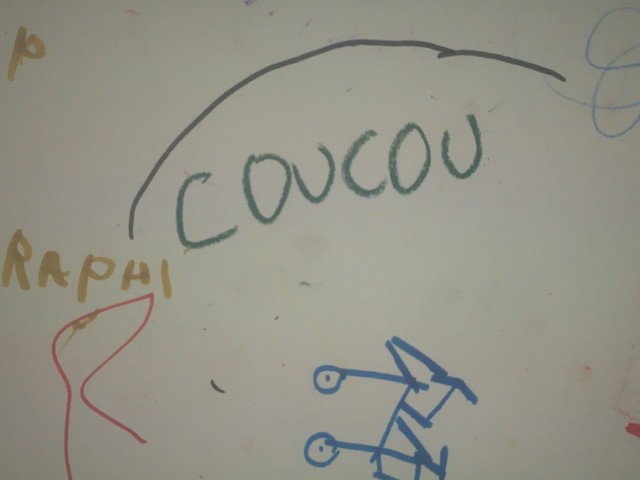 p
COUCOU
RAPHI